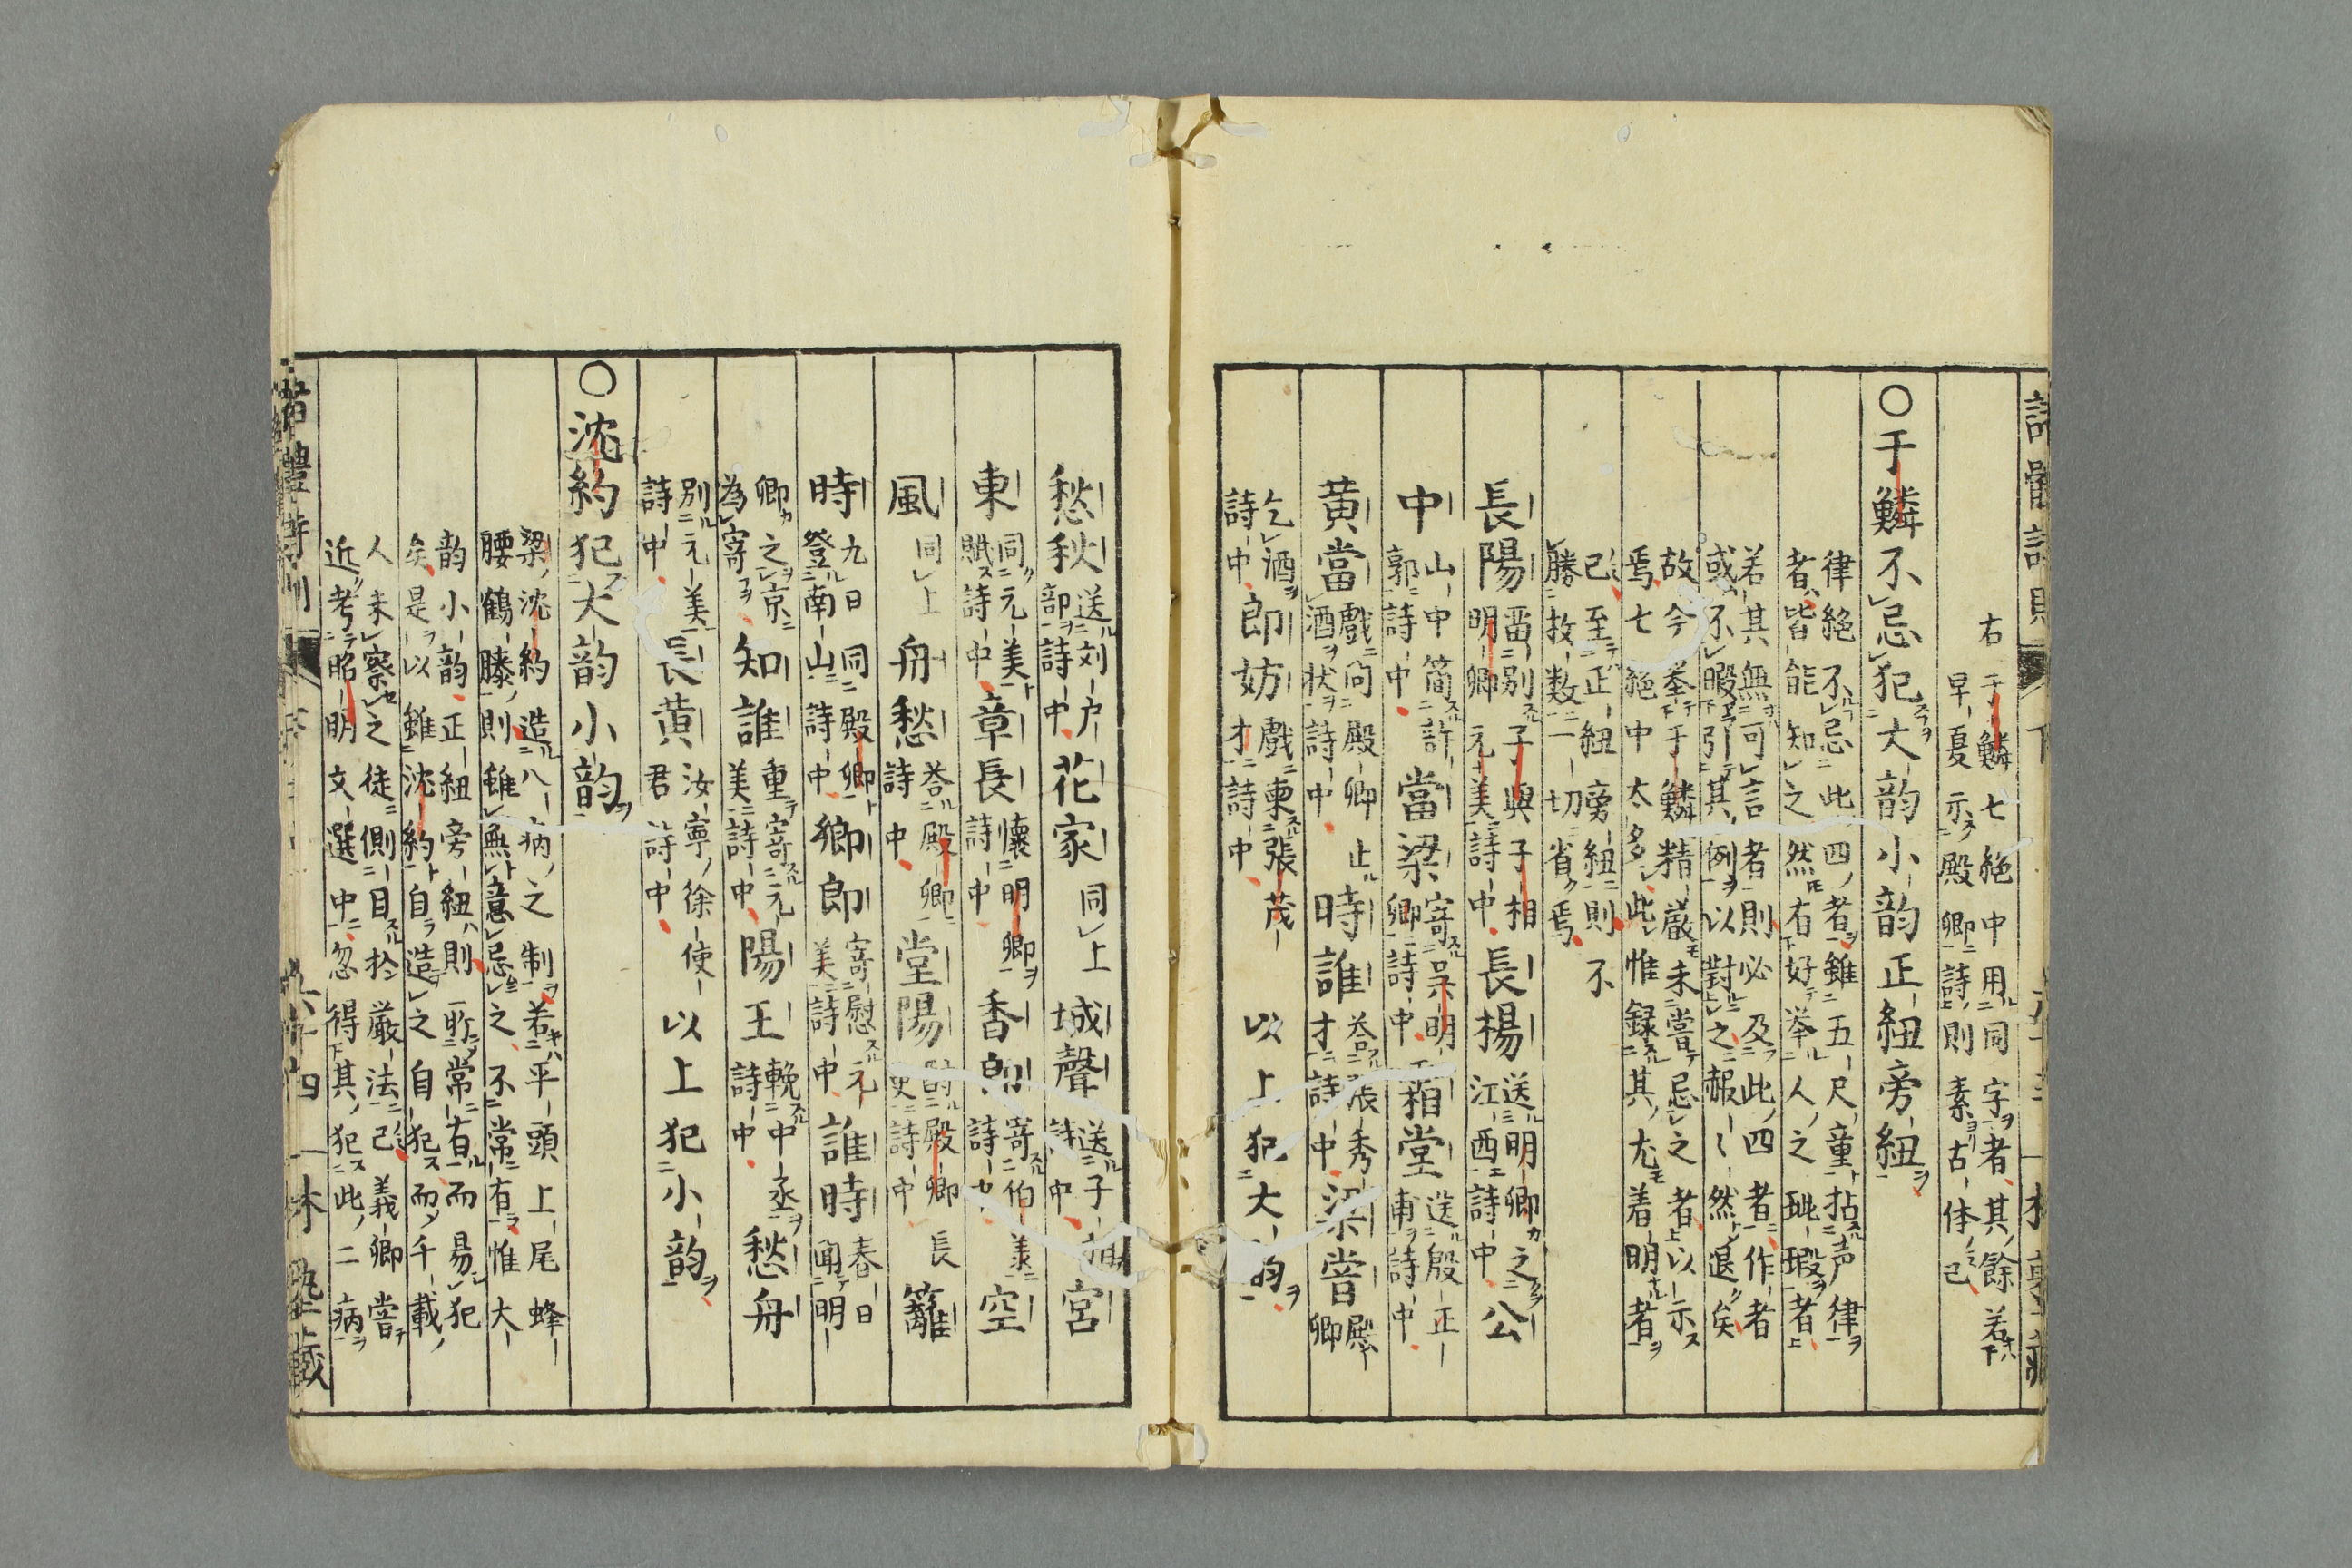 右于鱗七絕中用同字者其餘若下
早夏示殿卿詩則素古体已
〇于鱗不忌犯大韵小韵正紐旁紐
律絕不忌此四者雖五尺童拈声律
者皆能知之然有好挙人之玼瑕者
若其無可言者則必及此四者作者
或不暇引其例以對之赧〻然退矣
故今挙于鱗精厳未嘗忌之者以示
焉七絕中太多此惟録其尤着明者
已至正紐旁紐則不
勝枚数一切省焉
長陽畱別子與子相
明卿元美詩中長楊送明卿之
江西詩中公
中山中簡許
郭詩中當梁寄吴明
卿詩中霜堂送殷正
甫詩中
黄當戲問殿卿止
酒状詩中時誰答張秀
才詩中梁嘗殿
卿
乞酒
詩中郎妨戲東張茂
才詩中以上犯大韵
愁秋送刘户
部詩中花家同上城聲送子相
詩中宮
東同元美
賦詩中章長懷明卿
詩中香郎寄伯美
詩中空
風同上舟愁答殿卿
詩中堂陽酧殿卿長
史詩中籬
時九日同殿卿
登南山詩中卿郎寄慰元
美詩中誰時春日
聞明
卿之京
為寄知誰重寄元
美詩中陽王輓中丞
詩中愁舟
別元美
詩中長黄汝寧徐使
君詩中以上犯小韵
〇沈約犯大韵小韵
梁沈約造八病之制若平頭上尾蜂
腰鶴膝則雖無意忌之不常有惟大
韵小韵正紐旁紐則所常有而易犯
矣是以雖沈約自造之自犯而千載
人未察之徒側目於厳法已義卿嘗
近考昭明文選中忽得其犯此二病